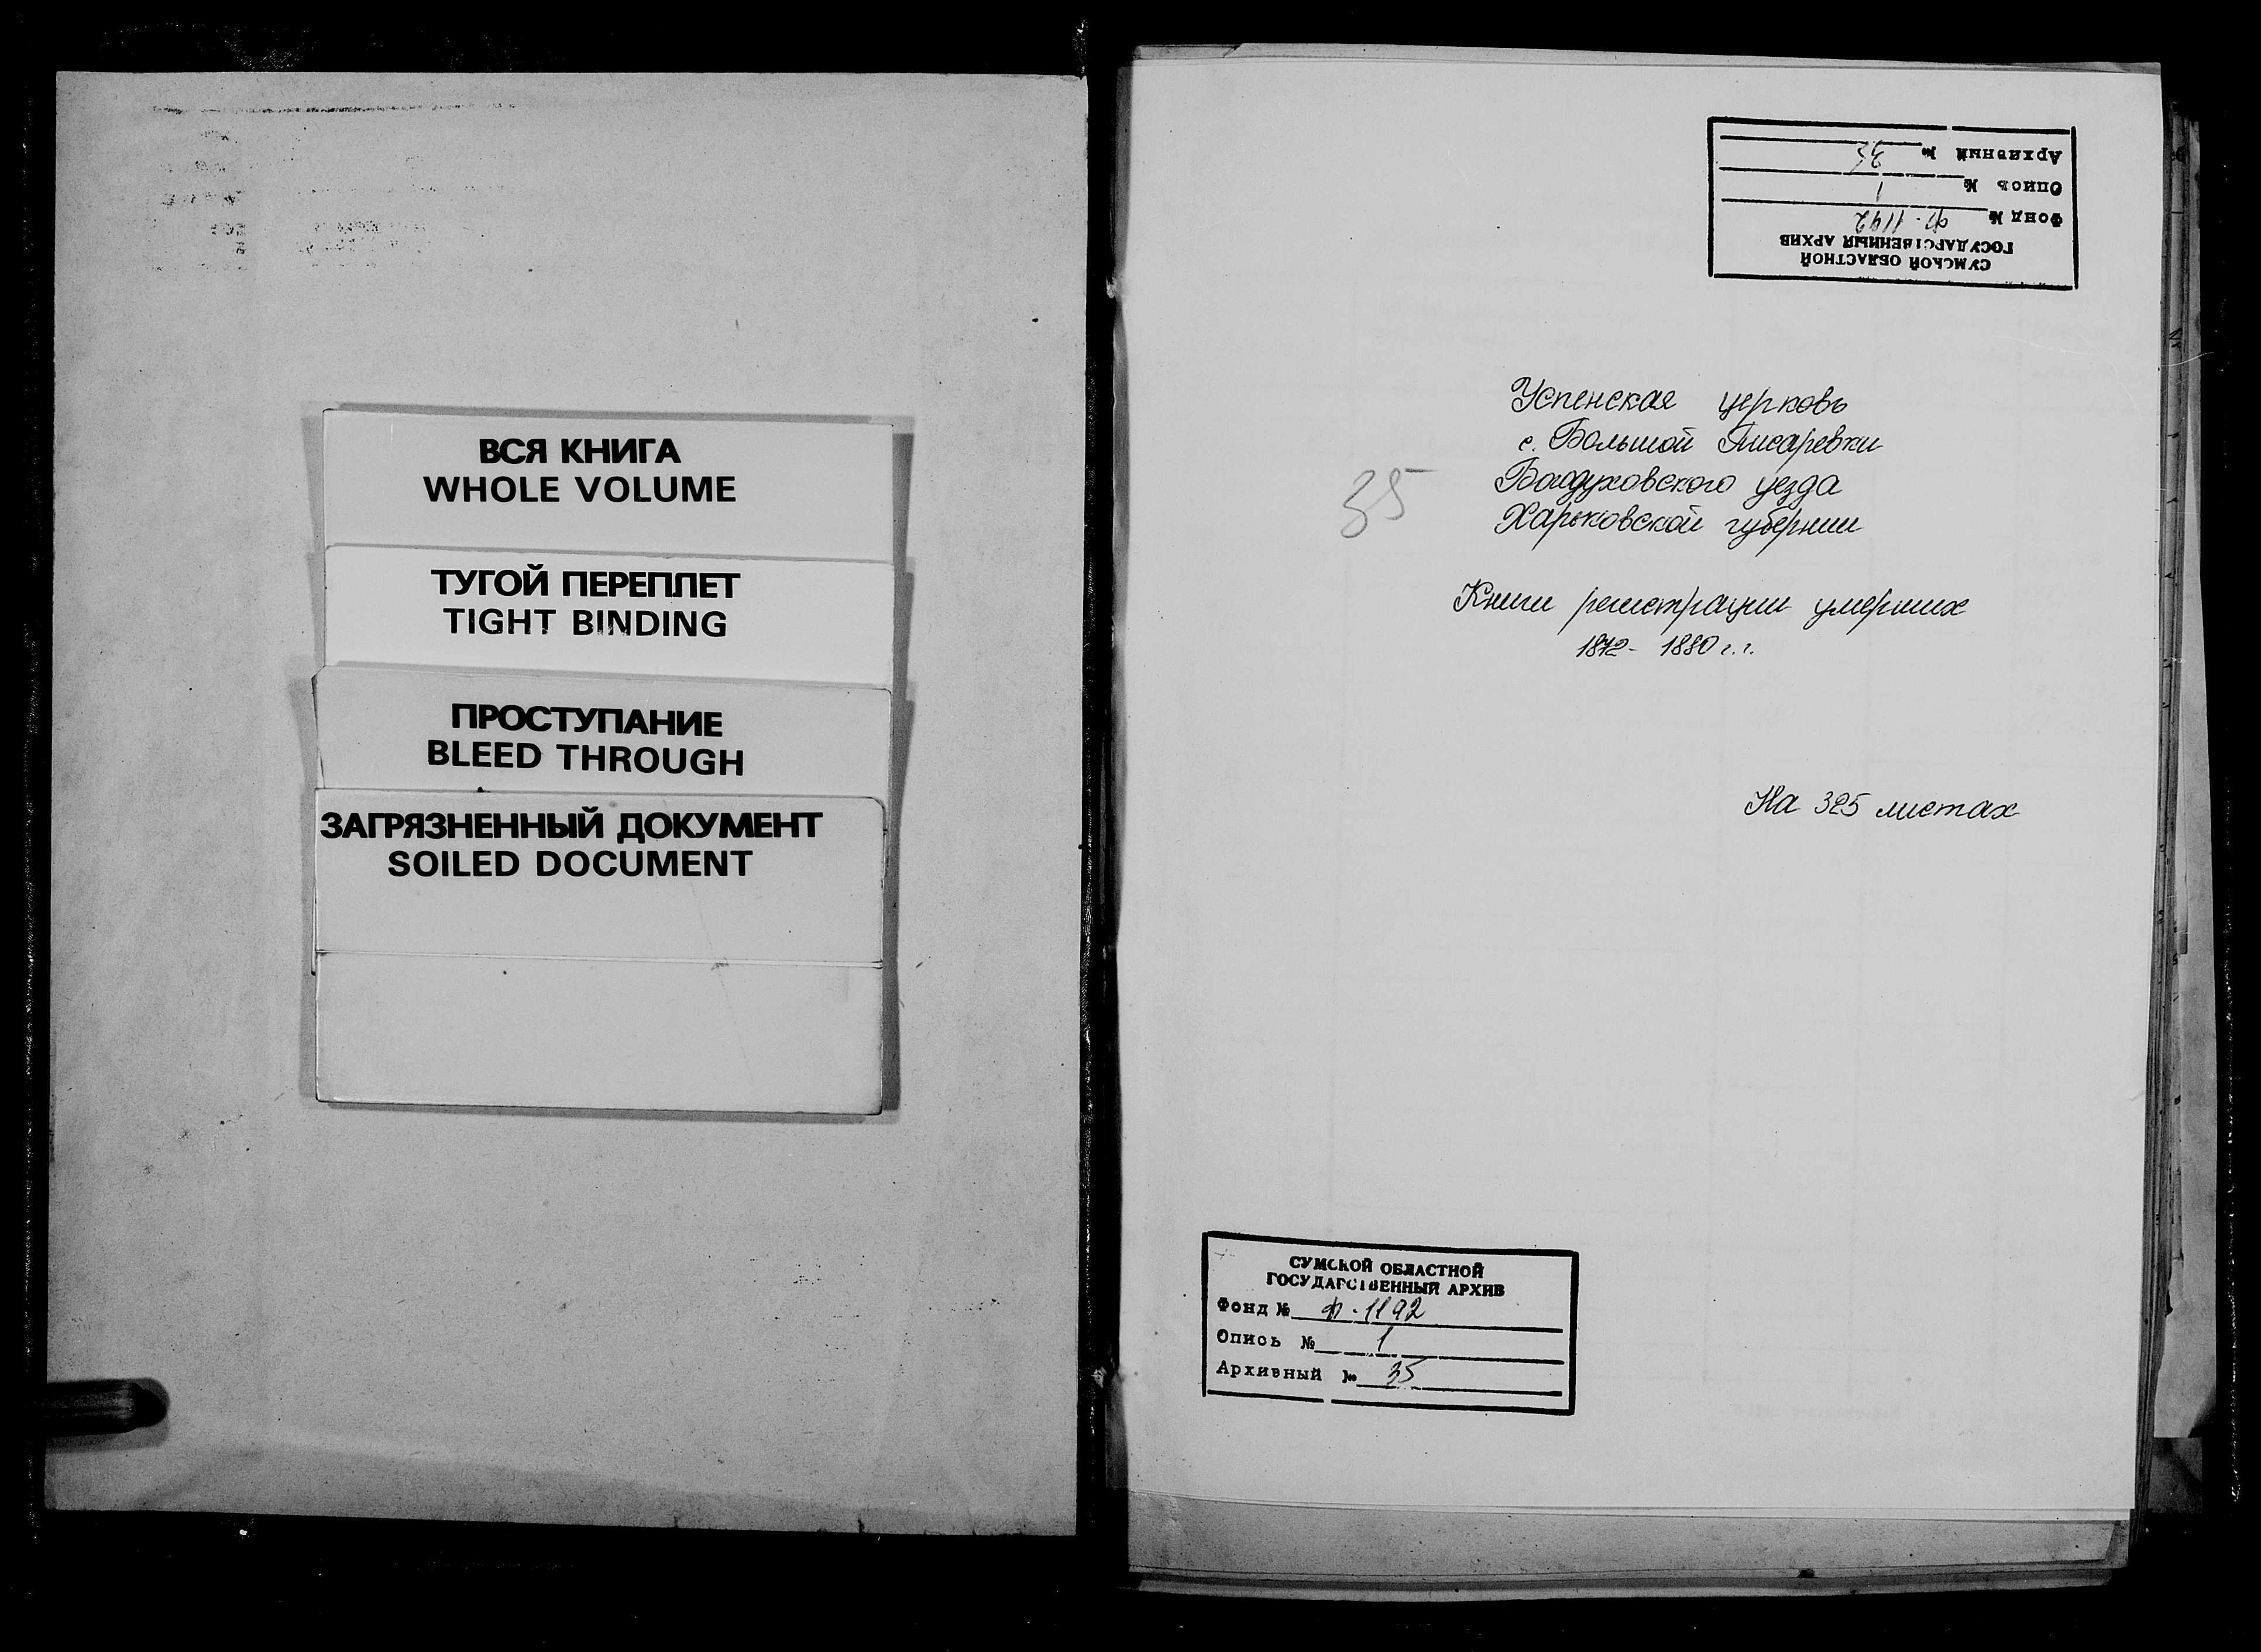 ВСЯ КНИГА
WHOLE VOLUME
ТУГОЙ ПЕРЕПЛЕТ
TIGHT BINDING
ПРОСТУПАНИЕ
BLEED THROUGH
ЗАГРЯЗНЕННЫЙ ДОКУМЕНТ
SOILED DOCUMENT
СУМСКОЙ ОБЛАСТНОЙ
ГОСУДАРСТВЕННЫЙ АРХИВ
Фонд № Ф.1192
Опись № 1
Архивный № 35
Успенская церковь
с. Большой Писаревки
Богодуховского уезда
35
Харьковской губернии
Книги регистрации умерших
1872- 1880 г.г.
На 325 листах
СУМСКОЙ ОБЛАСТНОЙ
ГОСУДАРСТВЕННЫЙ АРХИВ
Фонд № Ф.1192
Опись № 1
Архивный № 35